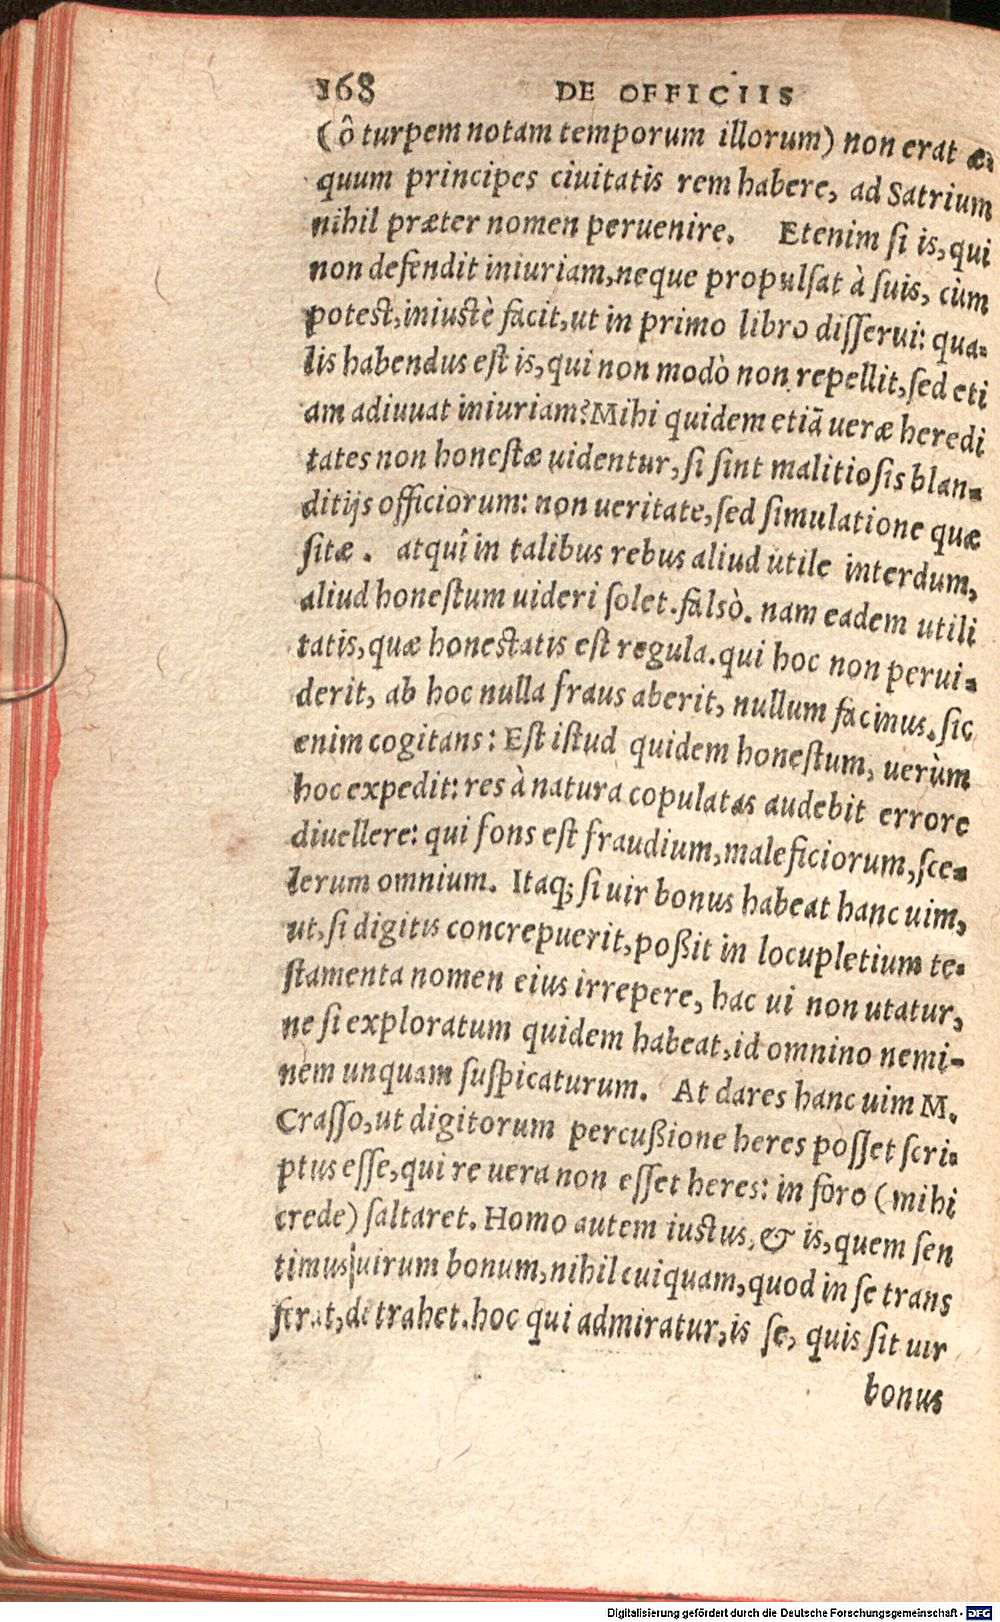 168 DE OFFICIIS
(ô turpem notam temporum illorum) non erat æ-
quum principes ciuitatis rem habere, ad Satrium
nihil præter nomen peruenire. Etenim ſi is, qui
non defendit iniuriam, neque propulſat à ſuis, cùm
poteſt, iniuſtè facit, ut in primo libro diſſerui: qua-
lis habendus eſt is, qui non modò non repellit, ſed eti
am adiuuat iniuriam? Mihi quidem etiã ueræ heredi
tates non honeſtæ uidentur, ſi ſint malitioſis blan-
ditijs officiorum: non ueritate, ſed ſimulatione quæ
ſitæ. atquî in talibus rebus aliud utile interdum,
aliud honeſtum uideri ſolet. falsò. nam eadem utili
tatis, quæ honeſtatis eſt regula. qui hoc non perui-
derit, ab hoc nulla fraus aberit, nullum facinus. ſic
enim cogitans: Eſt iſtud quidem honeſtum, uerùm
hoc expedit: res à natura copulatas audebit errore
diuellere: qui fons eſt fraudium, maleficiorum, ſce-
lerum omnium. Itaq; ſi uir bonus habeat hanc uim,
ut, ſi digitis concrepuerit, poßit in locupletium te-
ſtamenta nomen eius irrepere, hac ui non utatur,
ne ſi exploratum quidem habeat, id omnino nemi-
nem unquam ſuſpicaturum. At dares hanc uim M.
Craſſo, ut digitorum percußione heres poſſet ſcri-
ptus eſſe, qui re uera non eſſet heres: in foro (mihi
crede) ſaltaret. Homo autem iuſtus, & is, quem ſen
timus uirum bonum, nihil cuiquam, quod in ſe trans
ferat, detrahet. hoc qui admiratur, is ſe, quis ſit uir
bonus
Digitalisierung gefördert durch die Deutsche Forschungsgemeinschaft - DFG